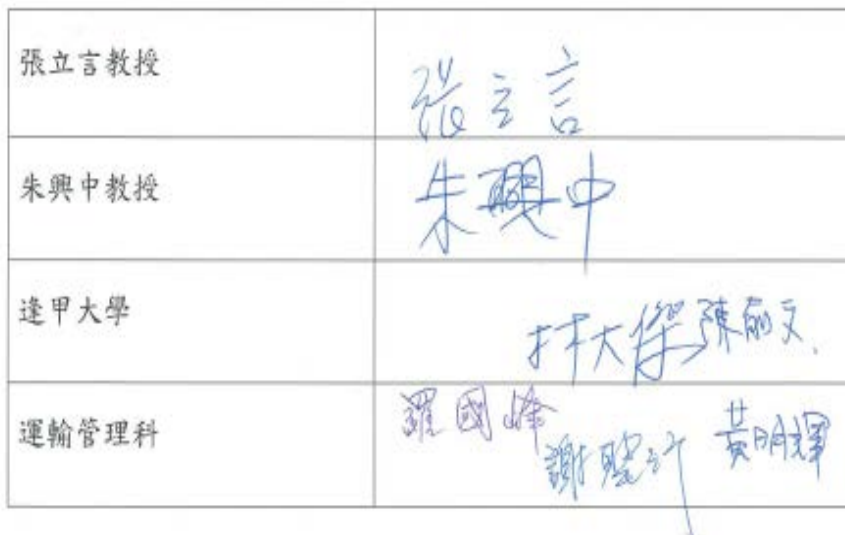 張立言教授
張立言
朱興中教授
朱興中
逢甲大學
林大傑 陳
運輸管理科
羅國峰
謝
黃明輝